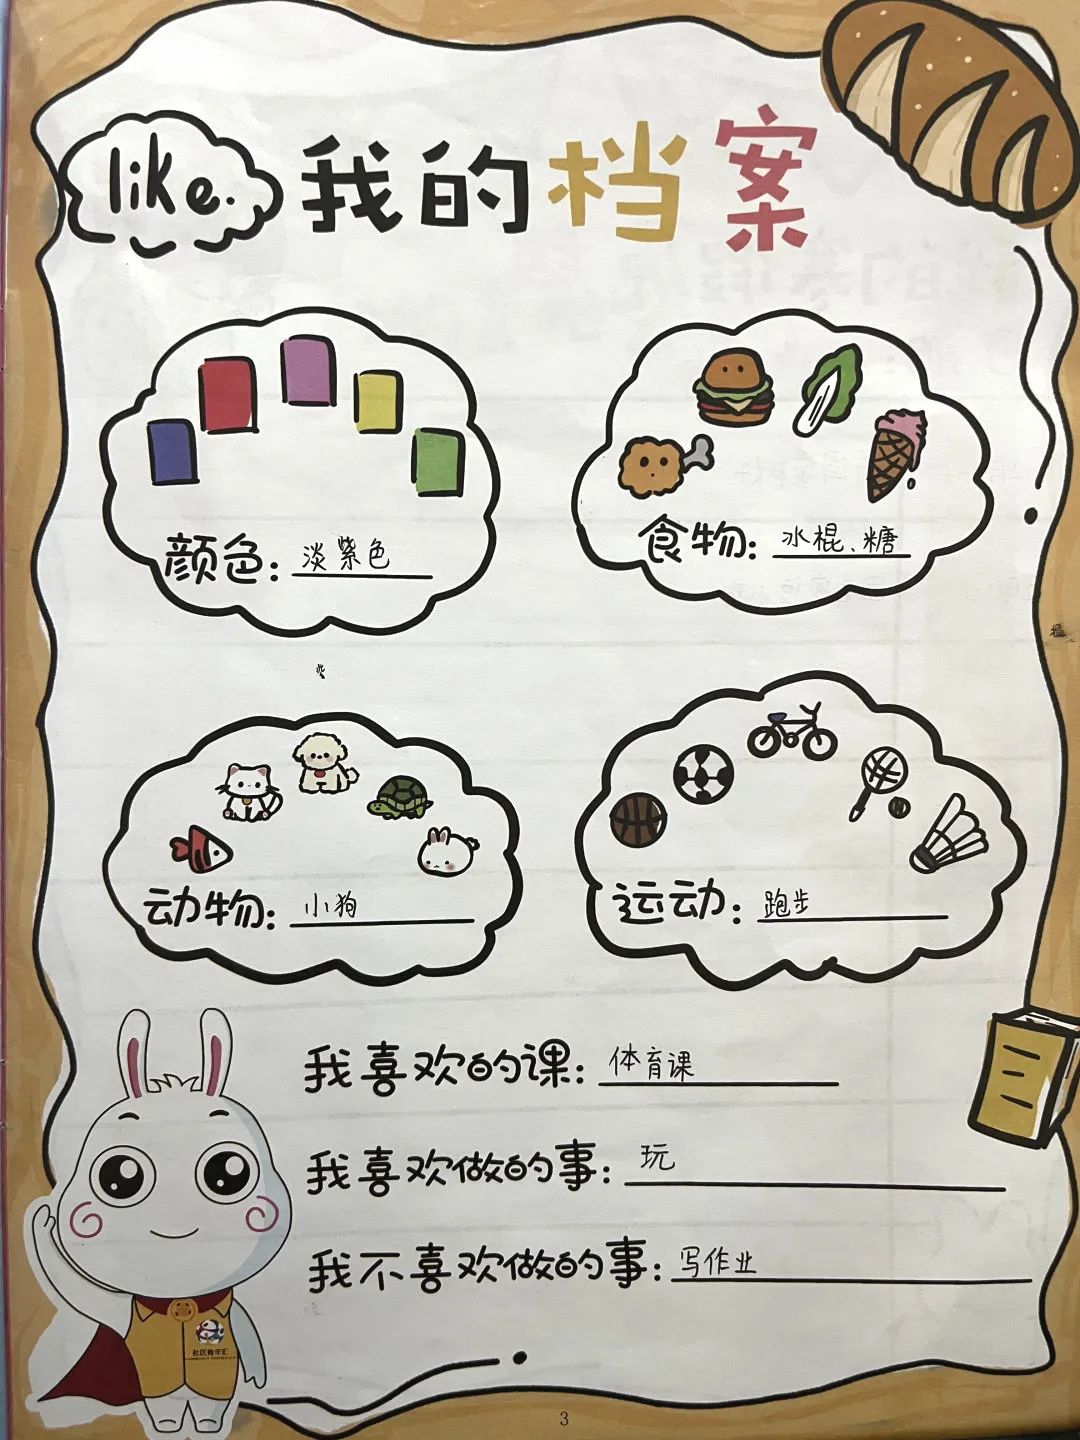 like. 我的档案
颜色: 淡紫色
食物: 水棍、糖
动物: 小狗
运动: 跑步
我喜欢的课: 体育课
我喜欢做的事: 玩
我不喜欢做的事: 写作业
社区青年汇
3